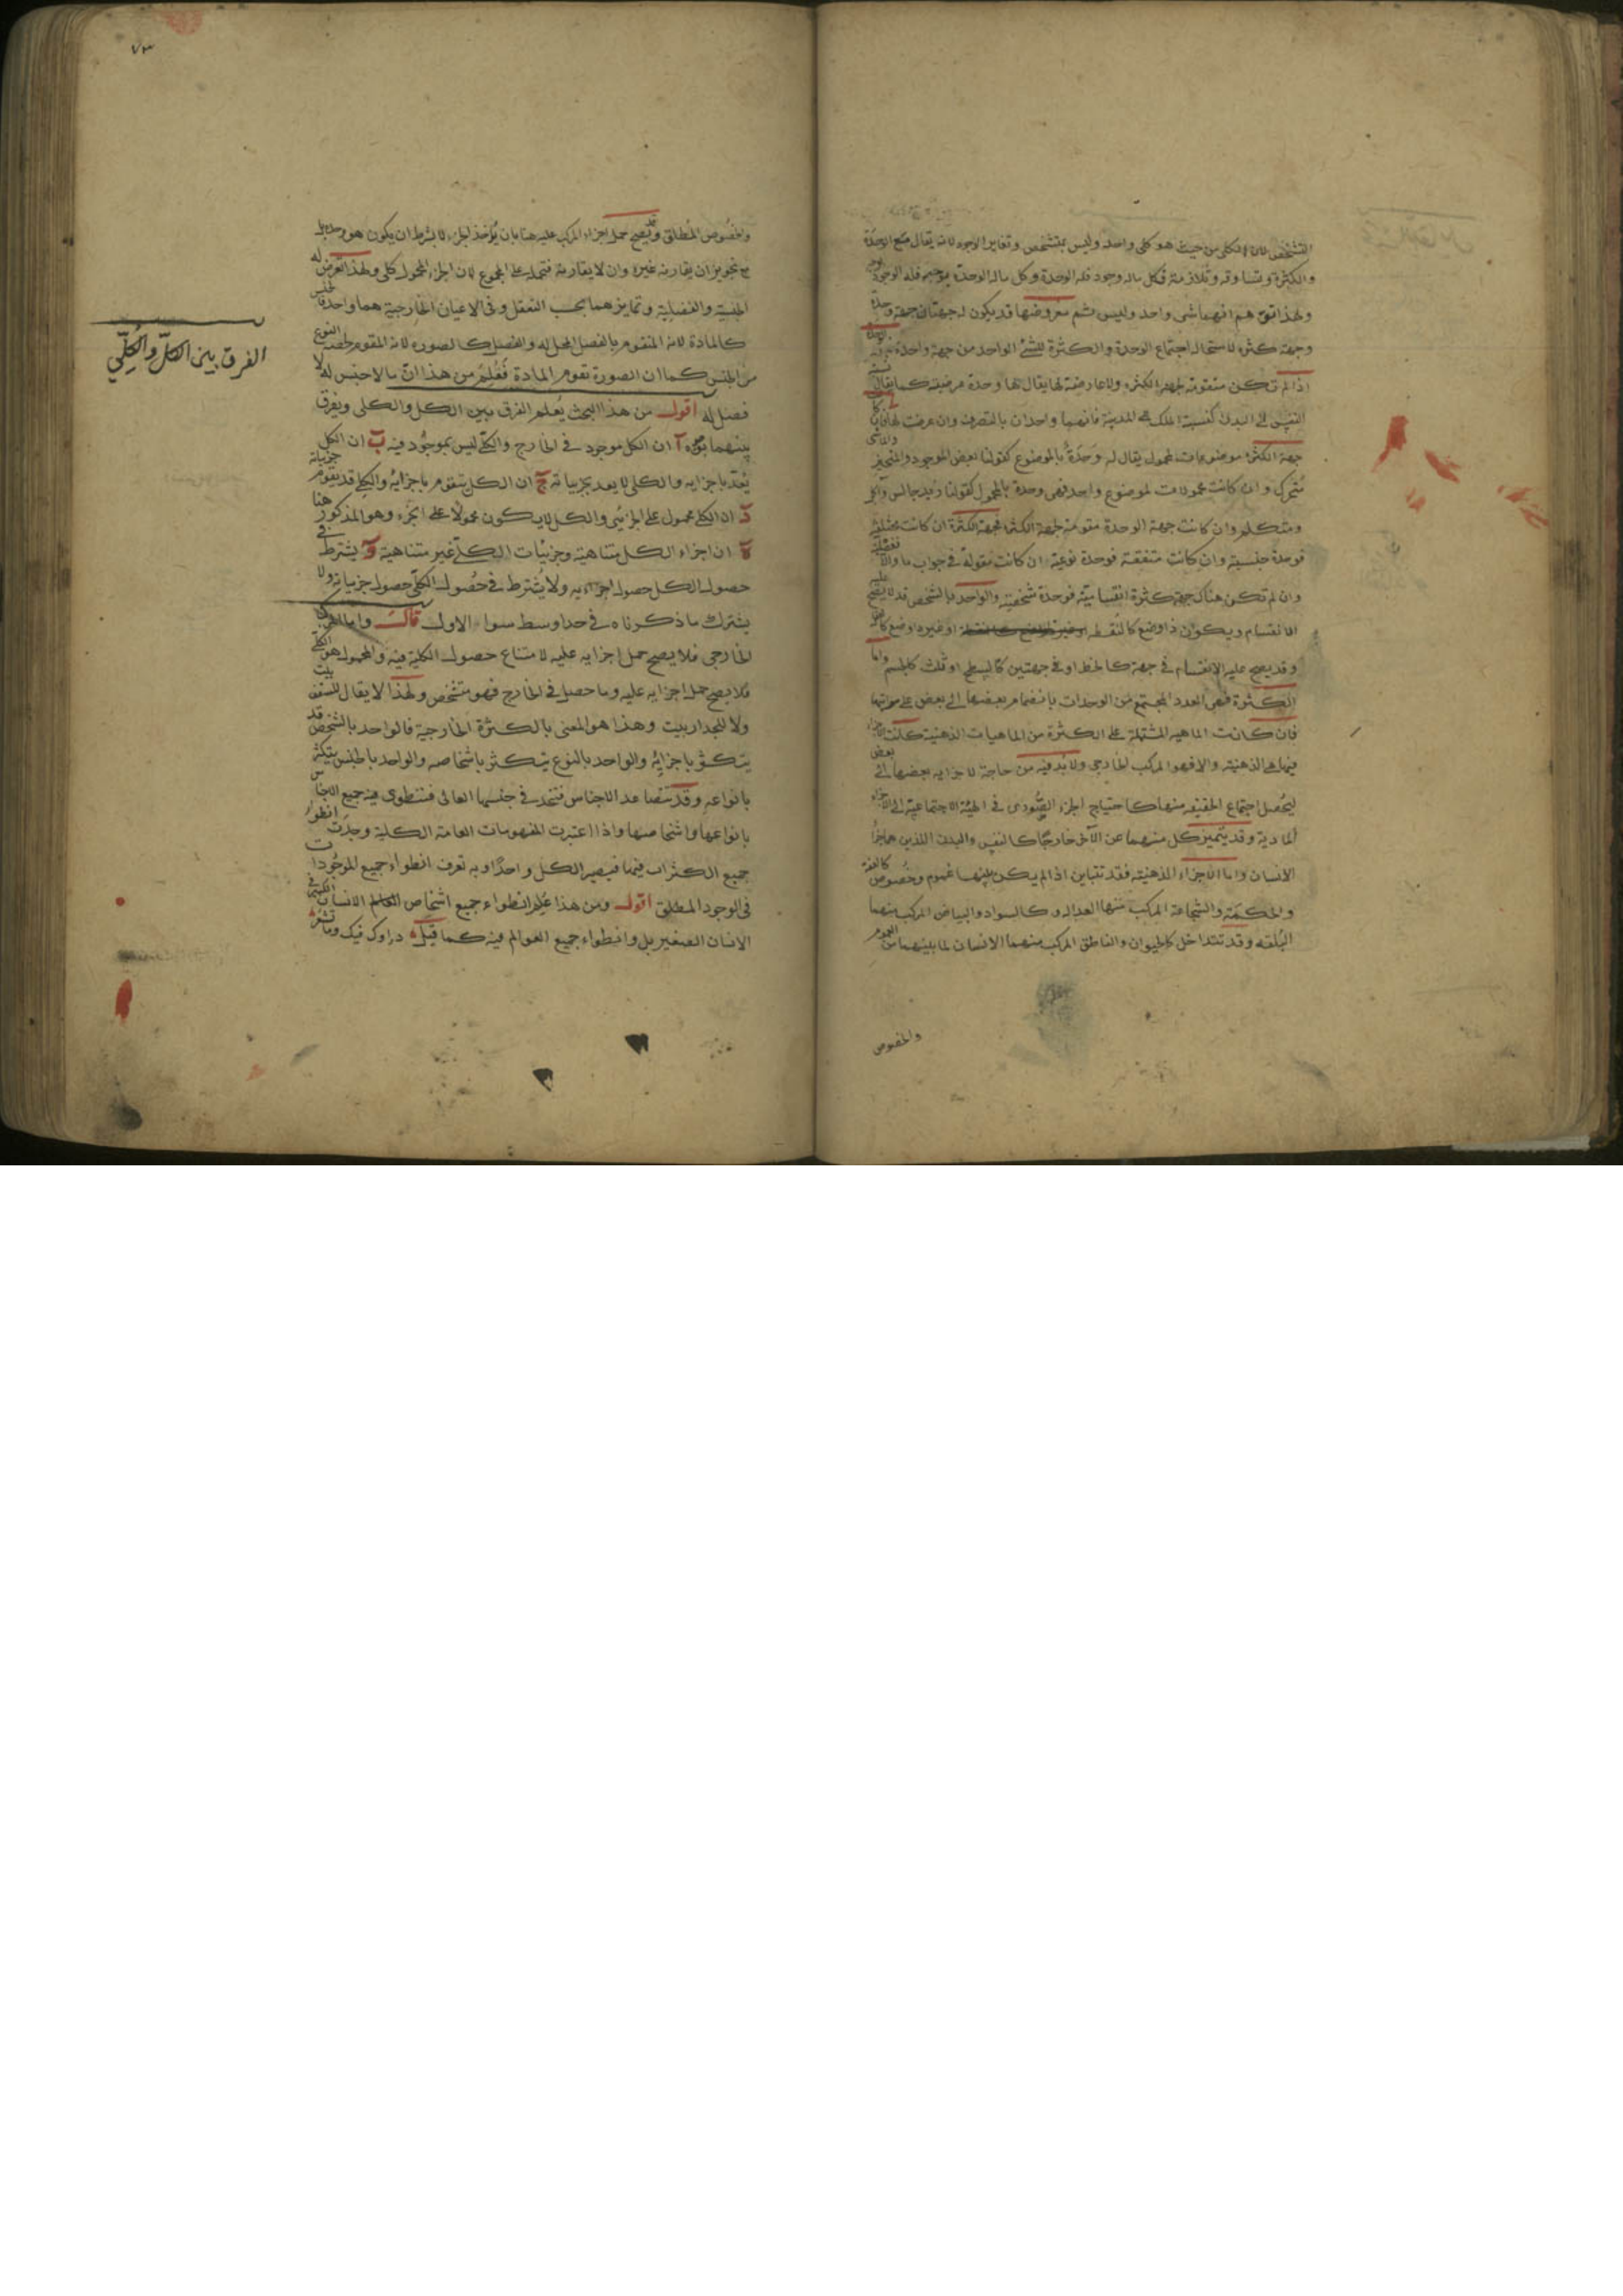 التشخص لان الكلى من حيث هو كلى واحد وليس بمتشخص وتغاير الوجود لانه يقال مع الوحدة
والكثرة وتساوقه وتلازمه فكل ماله وجود فله الوحدة وكل ماله الوحدة بوجه فله الوجود
ولهذا توهم انهما شى واحد وليس ثم معروضها قد يكون له جهتان جهة وحدة
وجهة كثره لاستحالة اجتماع الوحدة والكثرة للشئ الواحد من جهة واحدة
اذا لم تكن متقومة لجهة الكثره ولا عارضة لها يقال لها وحدة عرضية كما يقال نسبة
النفس الى البدن كنسبة الملك الى المدينة فانهما واحدان بالتصرف وان عرضت لها فان كا
جهة الكثره موضوعات لمحمول يقال له وحدة بالموضوع كقولنا بعض الموجود والمتحيز والماشى
متحرك وان كانت محمولات لموضوع واحد فهى وحدة بالمحمول كقولنا زيد جالس واكل
ومتكلم وان كانت جهة الوحدة مقومة لجهة الكثرة فجهة الكثرة ان كانت مختلفة
فوحدة جنسية وان كانت متفقة فوحدة نوعية ان كانت مقولة فى جواب ما والا ففصلية
وان لم تكن هناك جهة كثرة انقسامية فوحدة شخصية والواحد بالشخص قد لا يصح عليه
الانقسام ويكون ذا وضع كالنقطه او غير ذا وضع كا
وقد يصح عليه الانقسام فى جهة كالخط او فى جهتين كالسطح او ثلث كالجسم واما
الكثرة فهى العدد المجتمع من الوحدات بانضمام بعضها الى بعض على مراتبها
فان كانت الماهيه المشتملة على الكثرة من الماهيات الذهنية كانت الاجزاء
فيها هى الذهنية والا فهو المركب الخارجى ولا بد فيه من حاجة لاجزايه بعضها الى بعض
ليحصل اجتماع الحقيقه منها كاحتياج الجزء الصورى فى الهيئة الاجتماعية الى الاجزاء
المادية وقد يتميز كل منهما عن الآخر خارجًا كالنفس والبدن اللذين هما جزأ
الانسان واما الاجزاء الذهنية فقد تتباين اذا لم يكن بينها عموم وخصوص كالعفة
والحكمة والشجاعة المركب منها العداله وكالسواد والبياض المركب منهما
البلقه وقد تتداخل كالحيوان والناطق المركب منهما الانسان لما بينهما من العموم
والخصوص
٧٣
والخصوص المطلق وقد يصح حمل اجزاء المركب عليه هنا بان يؤخذ الجزء لا بشرط ان يكون هو وحده بل
مع تجويز ان يقارنه غيره وان لا يقارنه فتحمله على المجموع لان الجزء المحمول كلى ولهذا تعرض له
الجنسية والفصلية وتمايزهما بحسب التعقل وفى الاعيان الخارجية هما واحد فالجنس
كالمادة لانه المتقوم بالفصل المحل له والفصل كالصوره لانه المقوم لحصة النوع
من الجنس كما ان الصورة تقوم المادة فعُلم من هذا ان ما لا جنس له لا
فصل له اقول من هذا البحث يُعلم الفرق بين الكل والكلى ويفرق
بينهما بوجوه آ ان الكل موجود فى الخارج والكلى ليس بموجود فيه ب ان الكل
يُعدّ باجزايه والكلى لا يعد بجزيياته ج ان الكل يتقوم باجزايه والكلى قد يقوم جزيياته
د ان الكلى محمول على الجزئى والكل لا يكون محمولًا على الجزء وهو المذكور هنا
ه ان اجزاء الكل متناهية وجزئيات الكلى غير متناهية و يشترط فى
حصول الكل حصول اجزايه ولا يشترط فى حصول الكلى حصول جزيياته ولا
يشترك ما ذكرناه فى حد اوسط سواء الاول قال واما المركب
الخارجى فلا يصح حمل اجزايه عليه لامتناع حصول الكلية فيه والمحمول هو الكلى
فلا يصح حمل اجزايه عليه وما حصل فى الخارج فهو متشخص ولهذا لا يقال للسقف بيت
ولا للجدار بيت وهذا هو المعنى بالكثرة الخارجية فالواحد بالشخص قد
يتكثر باجزايه والواحد بالنوع يتكثر باشخاصه والواحد بالجنس يتكثر
بانواعه وقد تتصاعد الاجناس فتتحد فى جنسها العالى فتنطوى فيه جميع الاجناس
بانواعها واشخاصها واذا اعتبرت المفهومات العامة الكلية وجدت انطواء
جميع الكثرات فيها فيصير الكل واحدًا وبه تعرف انطواء جميع الموجودات
فى الوجود المطلق اقول ومن هذا علم انطواء جميع اشخاص العالم الانسان الكبير فى
الانسان الصغير بل وانطواء جميع العوالم فيه كما قيل دواوك فيك وما تشعر
الفرق بين الكلّ والكُلّي